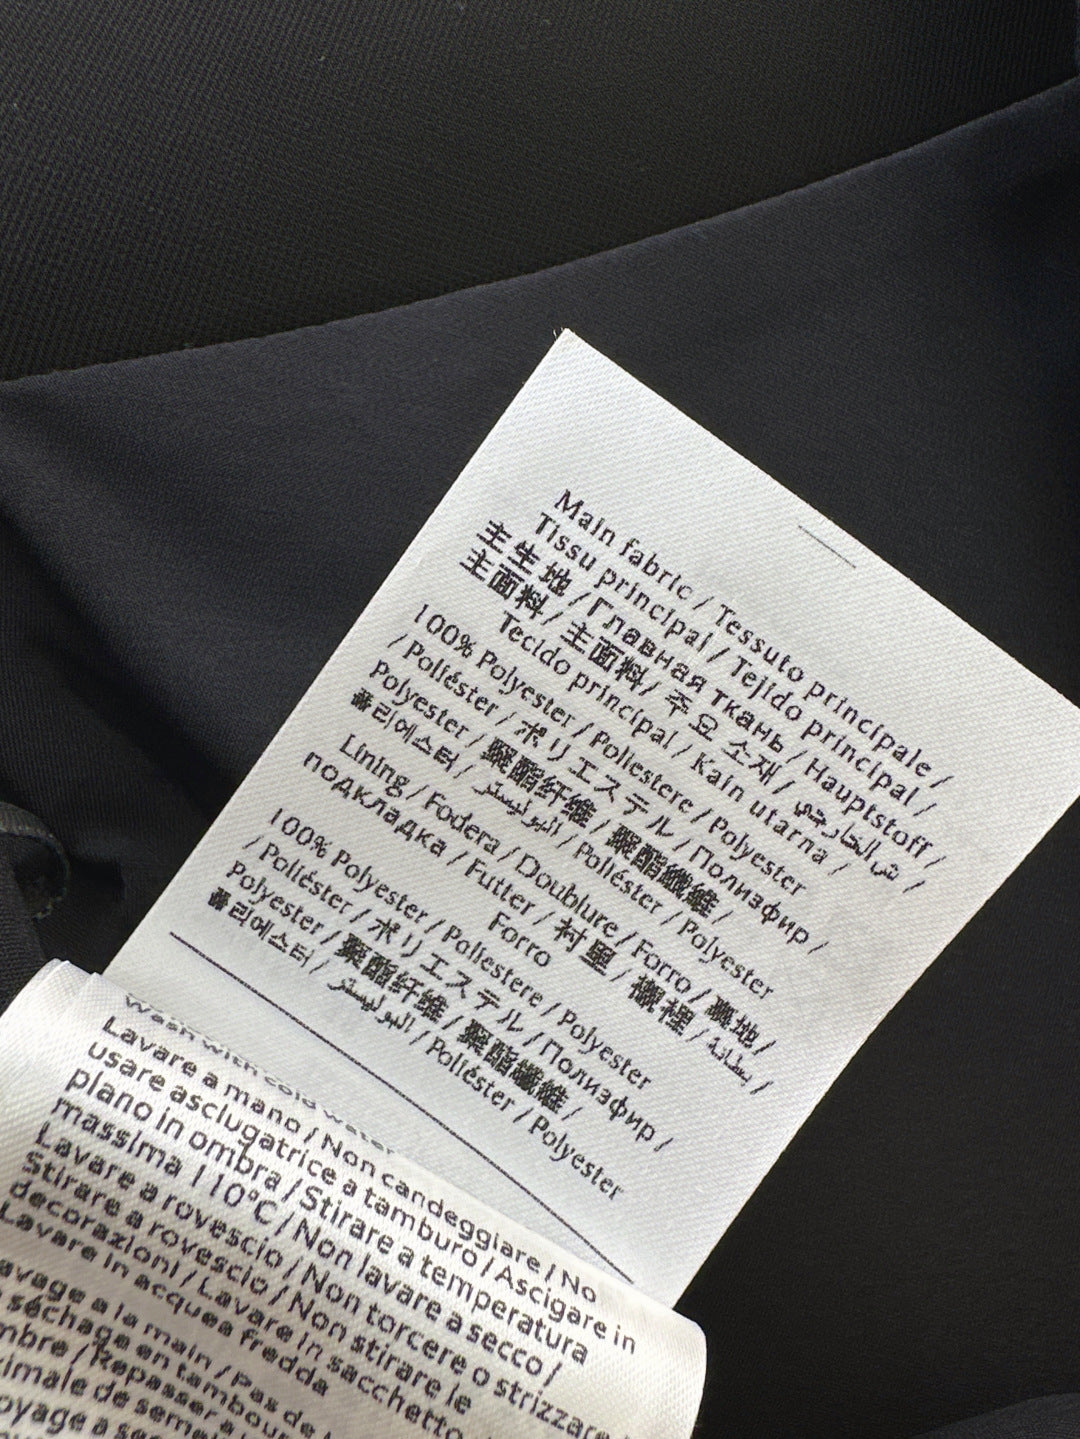 Main fabric / Tessuto principale /
Tissu principal / Tejido principal /
主生地 / Главная ткань / Hauptstoff /
主面料 / 主面料 / 주요 소재 /
Tecido principal / Kain utama /
100% Polyester / Poliestere / Polyester
/ Poliéster / ポリエステル / Полиэфир /
Polyester / 聚酯纤维 / 聚酯纖維 /
폴리에스터 / البوليستر / Poliéster / Polyester
Lining / Fodera / Doublure / Forro / 裏地 /
подкладка / Futter / 衬里 / 襯裡 / بطانة /
Forro
100% Polyester / Poliestere / Polyester
/ Poliéster / ポリエステル / Полиэфир /
Polyester / 聚酯纤维 / 聚酯纖維 /
폴리에스터 / البوليستر / Poliéster / Polyester
Wash with cold water
Lavare a mano / Non candeggiare / No
usare asciugatrice a tamburo / Ascigare in
plano in ombra / Stirare a temperatura
massima 110°C / Non lavare a secco /
Lavare a rovescio / Non torcere o strizzare
Stirare a rovescio / Non stirare le
decorazioni / Lavare in sacchetto
Lavare in acquea fredda
a la main / Pas de
séchage en tambour
/ Repasser à
de